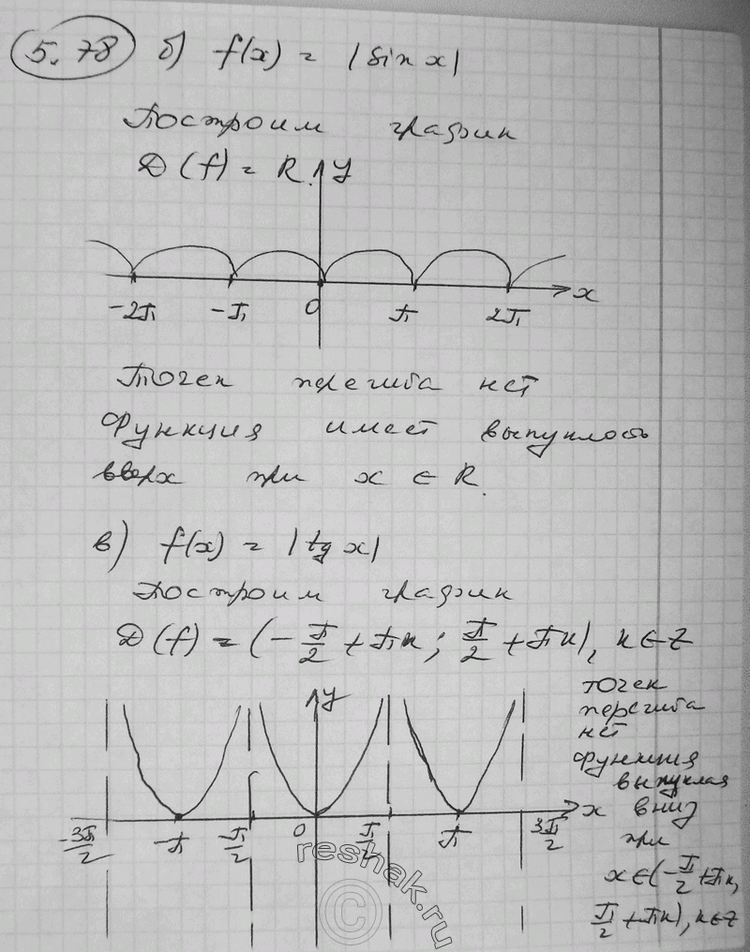 5.78 б) f(x) = |sin x|
Построим график
D(f) = R. y
-2π -π 0 π 2π x
Точек перегиба нет
Функция имеет выпуклость
вверх при x ∈ R.
в) f(x) = |tg x|
Построим график
D(f) = (-π/2 + πk; π/2 + πk), k ∈ Z
y
-3π/2 -π -π/2 0 π/2 π 3π/2 x
точек
перегиба
нет
функция
выпуклая
вниз
при
x ∈ (-π/2 + πk,
π/2 + πk), k ∈ Z
reshak.ru
©